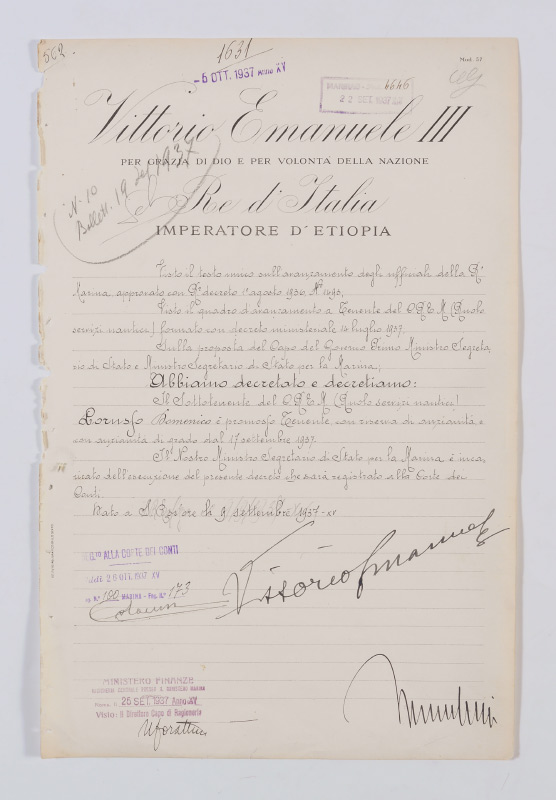 562.
1631
- 6 OTT. 1937 Anno XV
Mod. 57
4646
22 SET. 1937
Vittorio Emanuele III
PER GRAZIA DI DIO E PER VOLONTÀ DELLA NAZIONE
Re d'Italia
IMPERATORE D'ETIOPIA
N. 10
Bollett. 19 1937
Visto il testo unico sull'avanzamento degli ufficiali della Ra
Marina, approvato con Ro decreto 1° agosto 1936 No 1493;
Visto il quadro d'avanzamento a Tenente del C.R.E.M. (Ruolo
servizi nautici) formato con decreto ministeriale 14 luglio 1937;
Sulla proposta del Capo del Governo Primo Ministro Segreta
rio di Stato e Ministro Segretario di Stato per la Marina;
Abbiamo decretato e decretiamo:
Il Sottotenente del C.R.E.M. (Ruolo servizi nautici)
Domenico è promosso Tenente con riserva di anzianità e
con anzianità di grado dal 17 settembre 1937.
Il Nostro Ministro Segretario di Stato per la Marina è inca
ricato dell'esecuzione del presente decreto che sarà registrato alla Corte dei
Conti.
Dato a S. Rossore li 9 settembre 1937-XV
Vittorio Emanuele
ALLA CORTE DEI CONTI
26 OTT. 1937 XV
N.° 100 MARINA - FOG. N.° 173
Mussolini
MINISTERO FINANZE
Roma, li 25 SET. 1937 Anno XV
Visto: Il Direttore Capo di Ragioneria